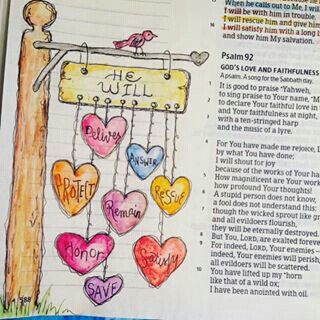 HE
WILL
Deliver
ANSWER
PROTECT
RESCUE
Remain
Honor
Satisfy
SAVE
588
When he calls out to Me, I will
I will be with him in trouble.
I will rescue him and give him
16 I will satisfy him with a long l
and show him My salvation.
Psalm 92
GOD'S LOVE AND FAITHFULNESS
A psalm. A song for the Sabbath day.
It is good to praise Yahweh,
to sing praise to Your name, "M
to declare Your faithful love in
and Your faithfulness at night,
with a ten-stringed harp
and the music of a lyre.
For You have made me rejoice, L
by what You have done;
I will shout for joy
because of the works of Your ha
How magnificent are Your work
how profound Your thoughts!
A stupid person does not know,
a fool does not understand this:
though the wicked sprout like gr
and all evildoers flourish,
they will be eternally destroyed.
But You, LORD, are exalted foreve
For indeed, LORD, Your enemies –
indeed, Your enemies will perish;
all evildoers will be scattered.
10 You have lifted up my horn
like that of a wild ox;
I have been anointed with oil.